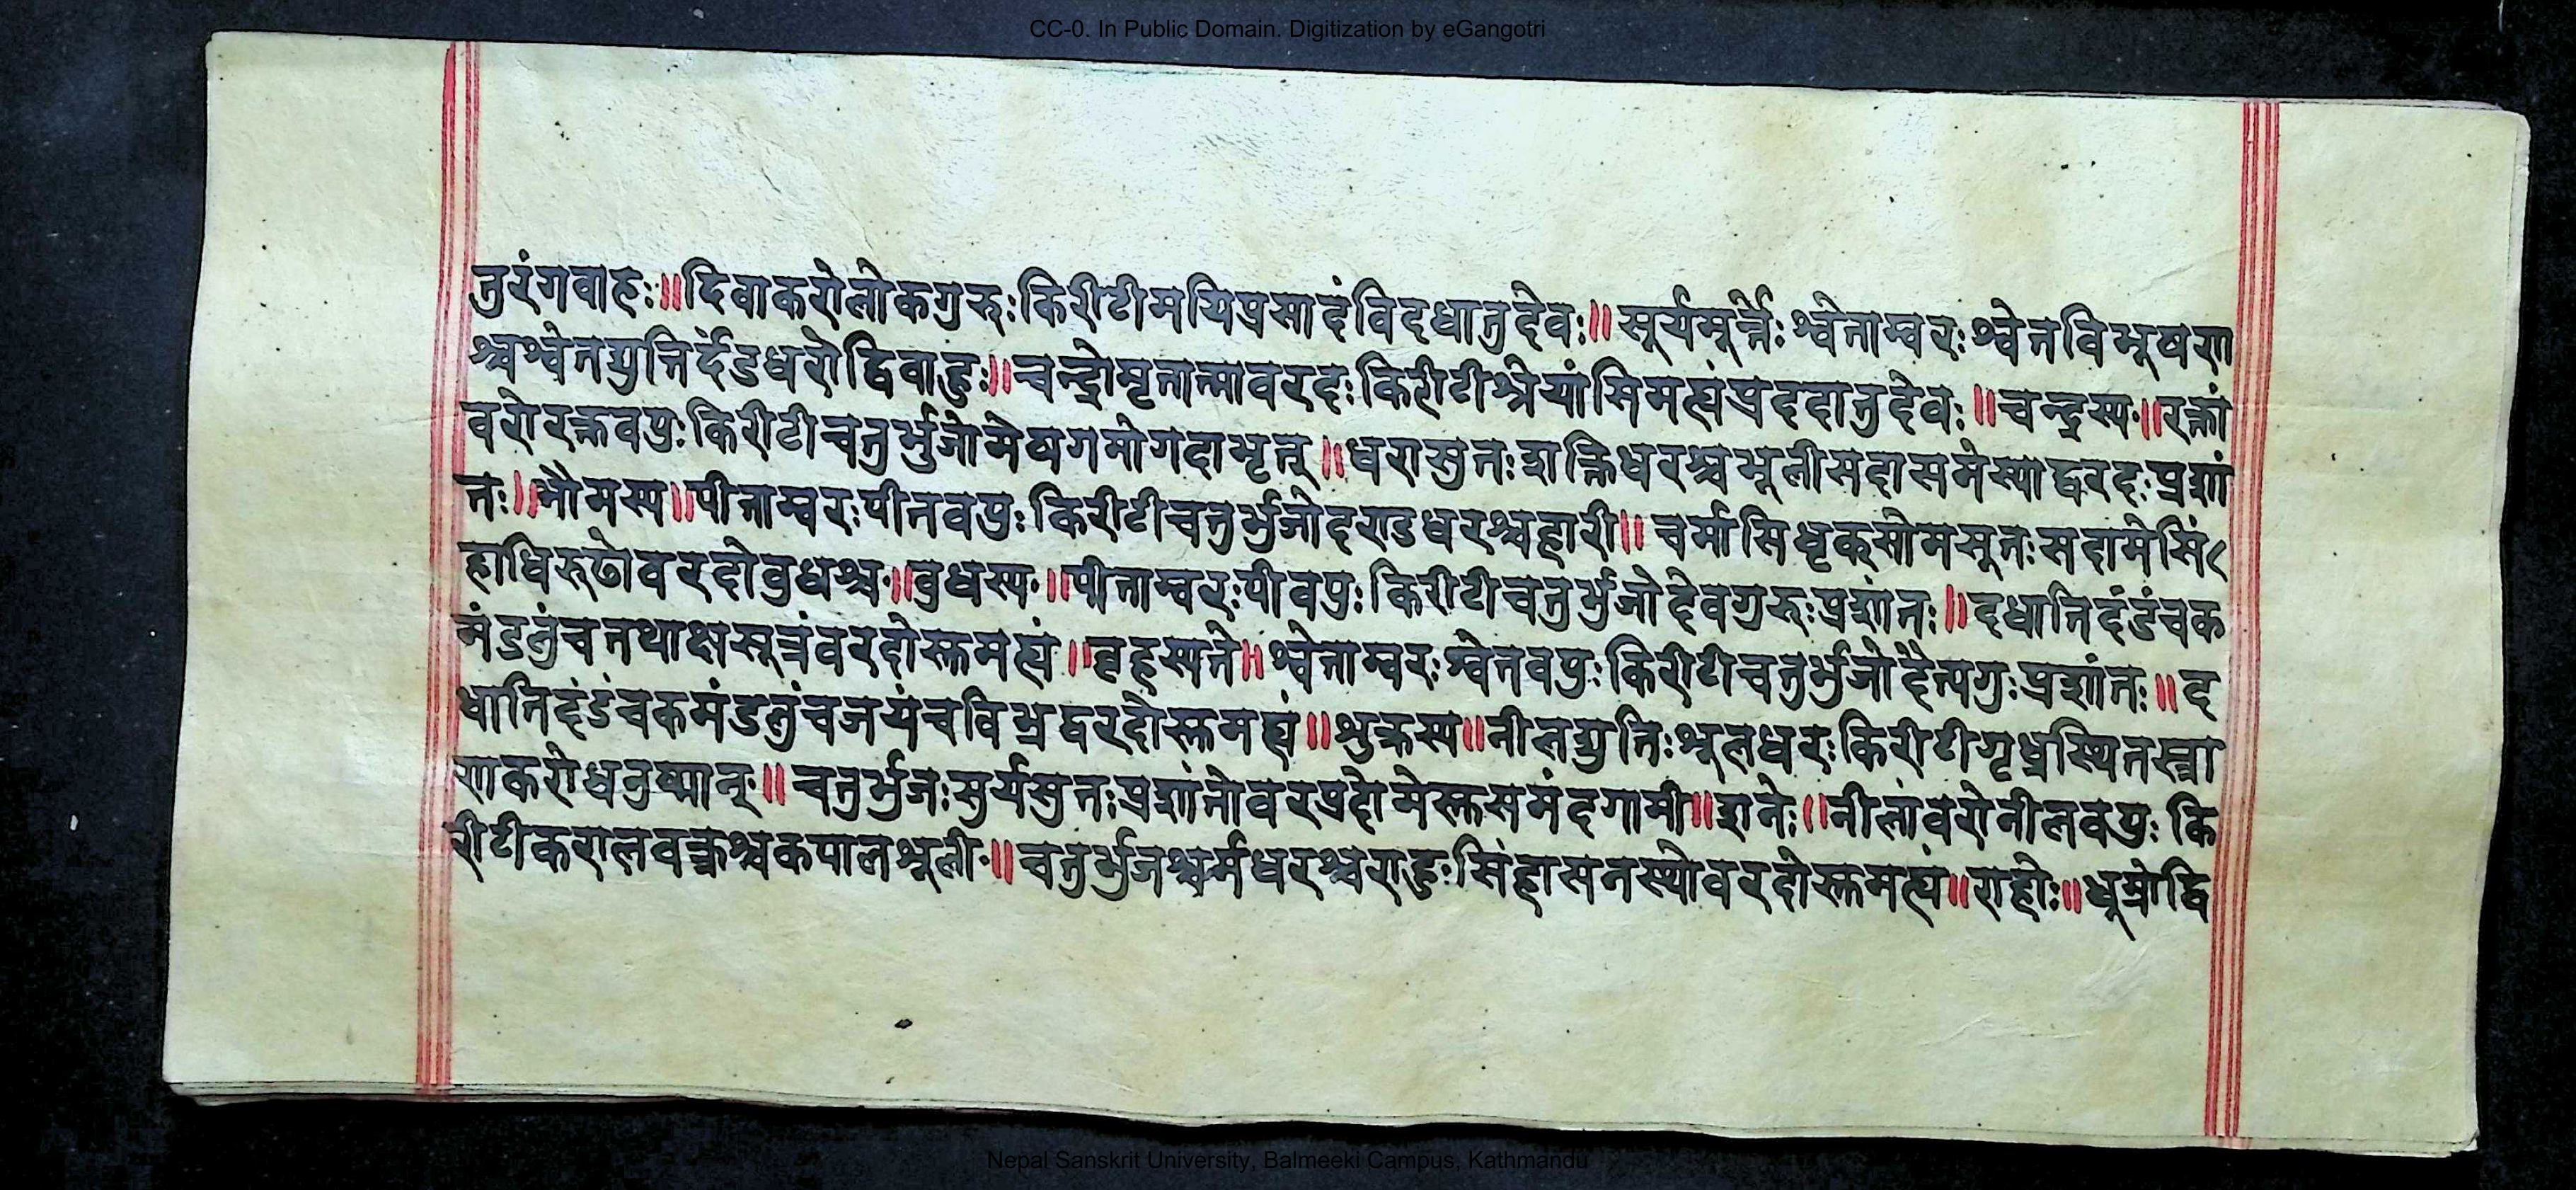 CC-0. In Public Domain. Digitization by eGangotri
तुरंगवाहः॥दिवाकरोलोकगुरुःकिरीटीमयिप्रसादंविदधातुदेवः॥सूर्यमूर्त्तेःश्वेताम्बरःश्वेतविभूषण
श्चश्वेतद्युतिर्दंडधरोद्विवाहुः॥चन्द्रोमृतात्मावरदःकिरीटीश्रेयांसिमह्यंप्रददातुदेवः॥चन्द्रस्य॥रक्तां
वरोरक्तवपुःकिरीटीचतुर्भुजोमेषगमोगदाभृत्॥धरासुतःशक्तिधरश्चशूलीसदासमंस्याद्वरदःप्रशां
तः॥भौमस्य॥पीताम्बरःपीतवपुःकिरीटीचतुर्भुजोदण्डधरश्चहारी॥चर्मासिधृक्सोमसूतःसदामेसिं
हाधिरूढोवरदोवुधश्च॥वुधस्य॥पीताम्बरःपीवपुःकिरीटीचतुर्भुजोदेवगुरुःप्रशांतः॥दधातिदंडंचक
मंडलुंचतथाक्षसूत्रंवरदोस्तमह्यं॥वृहस्पते॥श्वेताम्बरःश्वेतवपुःकिरीटीचतुर्भुजोदैत्यगुःप्रशांतः॥द
धातिदंडंचकमंडलुंचजयंचविभ्रद्वरदोस्तमह्यं॥शुक्रस्य॥नीलद्युतिःशूलधरःकिरीटीगृध्रस्थितस्त्रा
णकरोधनुष्मान्॥चतुर्भुजःसुर्यसुतःप्रशांतोवरप्रदोमेस्तसमंदगामी॥शनेः॥नीलांवरोनीलवपुःकि
रीटीकरालवक्त्रश्चकपालशूली॥चतुर्भुजश्चर्मधरश्चराहुःसिंहासनस्थोवरदोस्तमह्यं॥राहोः॥धूम्रोद्वि
Nepal Sanskrit University, Balmeeki Campus, Kathmandu